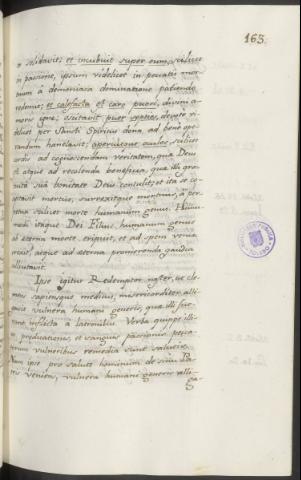 165.
solidavit; et incubuit super eum, scilicet
in passione, ipsum videlicet in peccatis mor-
tuum á demoniaca dominatione patiendo
redemit; et calefacta est caro pueri, divini a-
moris igne; oscitavit puer septies, devote vi-
delicet per Sancti Spiritus dona, ad bene ope-
randum hanelavit; aperuitque oculos, scilicet
cordis ad cognoscendam veritatem, quæ Deus
est atque ad recolenda beneficia, quæ illi gra-
tuita suâ bonitate Deus contulit; et ita os-
citavit mortuus, surrexitque mortuus, á per-
petua scilicet morte humanum genus. Huma-
nus itaque Dei Filius, humanum genus
ab eterna morte eripuit, et ad spem æterna
erexit, atque ad eterna promerenda gaudia
Ipse igitur Redemptor noster, ut cle-
mens sapiensque medicus, misericorditer alli-
gavit vulnera humani generis, quæ illi fue-
rant inflicta á latrunculis. Verba quippe illi-
us predicationis, et sanguis passionis pecca-
torum vulneribus remedia sunt salutis.
Nam ipse pro salute hominum de sinu Pa-
tris veniens, vulnera humani generis alli-
ga-